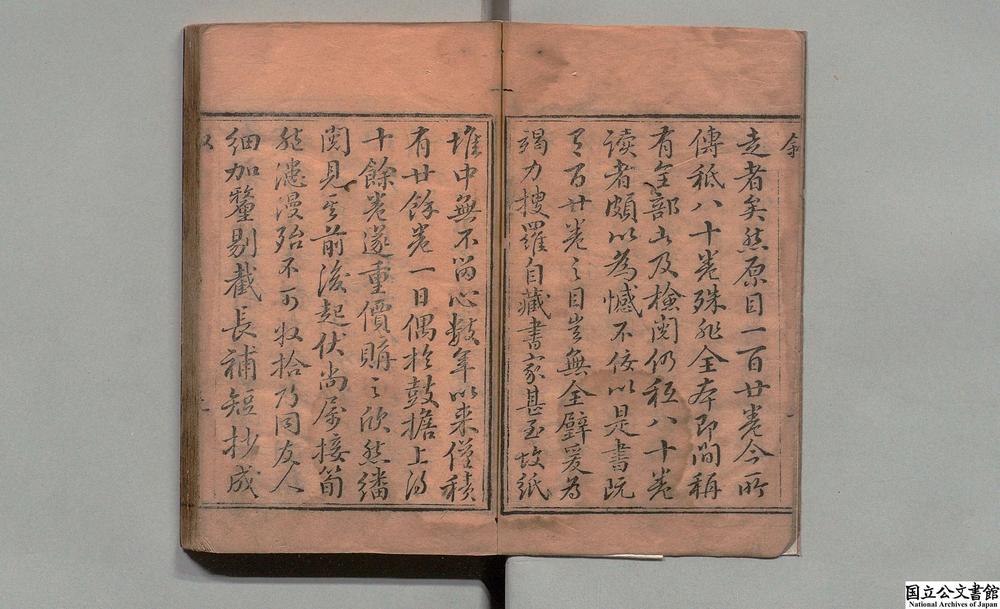 序
走者矣然原目一百廿卷今所
傳祗八十卷殊非全本即間稱
有全部者及檢閱仍祗八十卷
讀者頗以為憾不佞以是書既
有百廿卷之目豈無全璧爰為
竭力搜羅自藏書家甚至故紙
堆中無不留心數年以來僅積
有廿餘卷一日偶於鼓擔上得
十餘卷遂重價購之欣然繙
閱見其前後起伏尚屬接筍
然漶漫殆不可收拾乃同友人
細加釐剔截長補短抄成
国立公文書館
National Archives of Japan